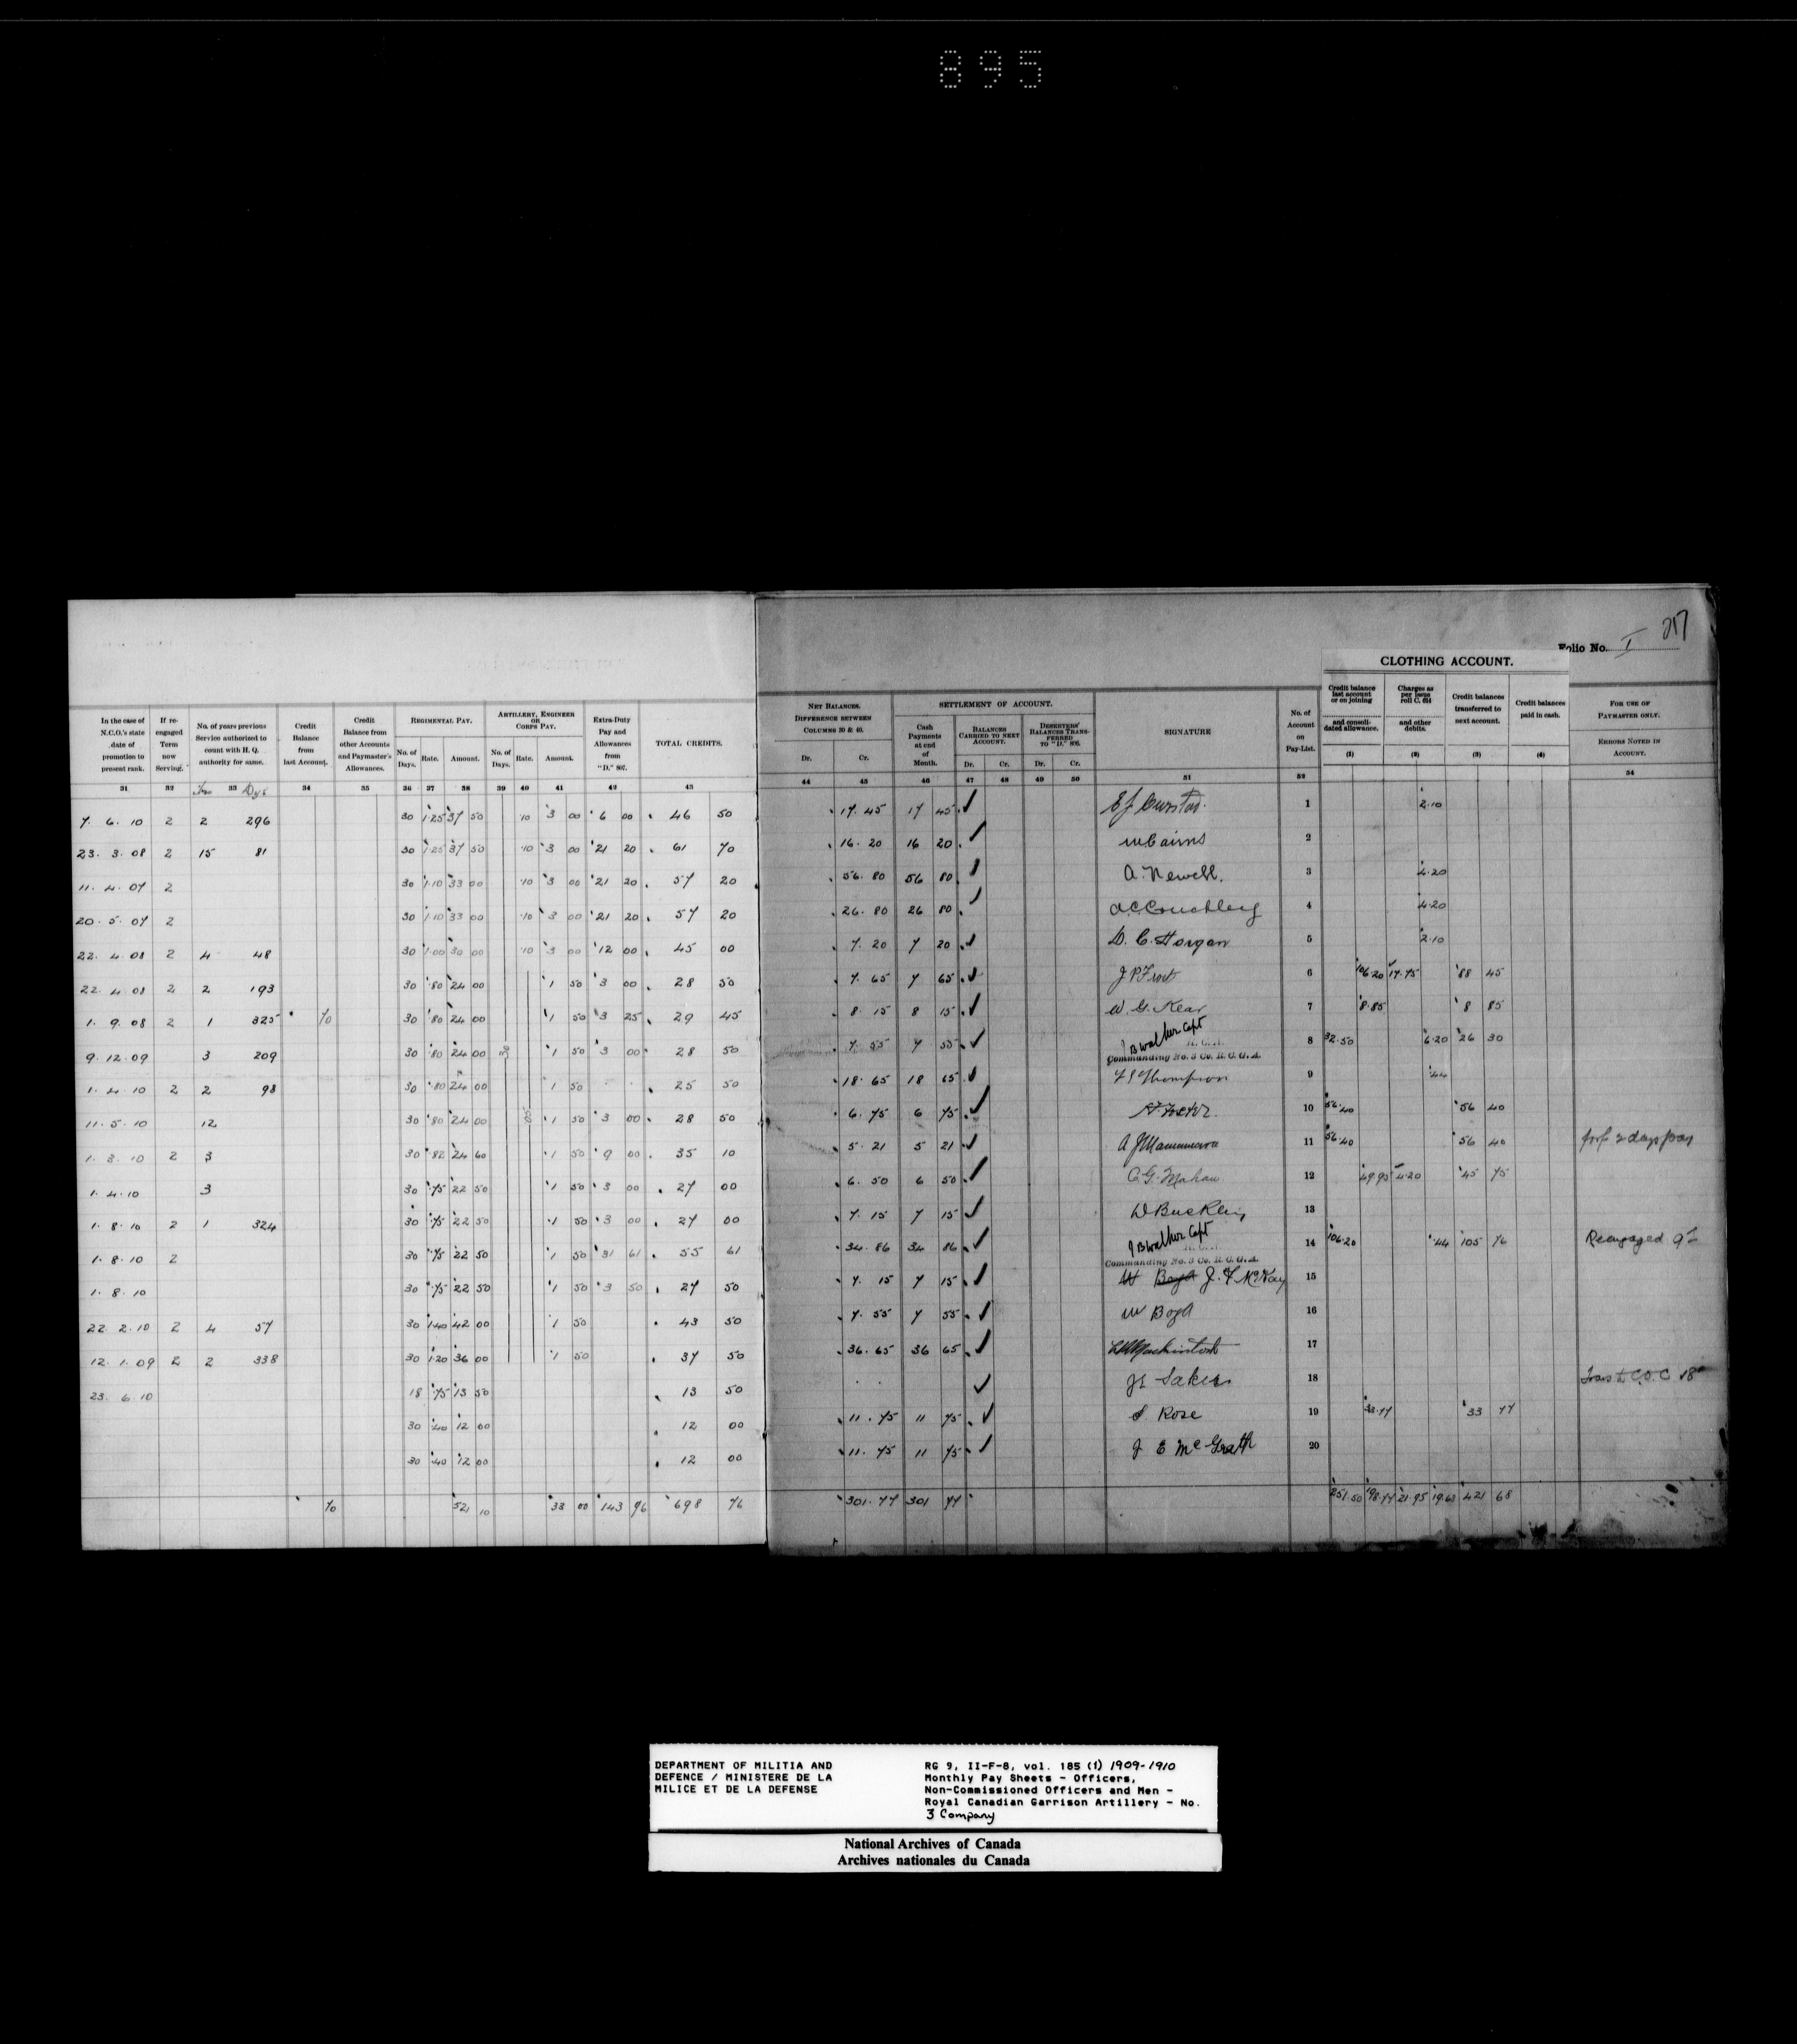 895
217
Folio No. I
CLOTHING ACCOUNT.
In the case of N.C.O.'s state date of promotion to present rank. | If re-engaged Term now Serving. | No. of years previous Service authorized to count with H. Q. authority for same. | Credit Balance from last Account. | Credit Balance from other Accounts and Paymaster's Allowances. | REGIMENTAL PAY. No. of Days. Rate. Amount. | ARTILLERY, ENGINEER OR CORPS PAY. No. of Days. Rate. Amount. | Extra-Duty Pay and Allowances from "D." 807. | TOTAL CREDITS.
31 32 33 Dys 34 35 36 37 38 39 40 41 42 43
7. 6. 10 2 2 296 30 1.25 37 50 .10 3 00 6 00 46 50
23. 3. 08 2 15 81 30 1.25 37 50 .10 3 00 21 20 61 70
11. 4. 07 2 30 1.10 33 00 .10 3 00 21 20 57 20
20. 5. 07 2 30 1.10 33 00 .10 3 00 21 20 57 20
22. 4. 08 2 4 48 30 1.00 30 00 .10 3 00 12 00 45 00
22. 4 08 2 2 193 30 .80 24 00 1 50 3 00 28 50
1. 9. 08 2 1 325 70 30 .80 24 00 1 50 3 25 29 45
9. 12. 09 3 209 30 .80 24 00 1 50 3 00 28 50
1. 4. 10 2 2 98 30 .80 24 00 1 50 25 50
11. 5. 10 12 30 .80 24 00 1 50 3 00 28 50
1. 3. 10 2 3 30 .82 24 60 1 50 9 00 35 10
1. 4. 10 3 30 .75 22 50 1 50 3 00 27 00
1. 8. 10 2 1 324 30 .75 22 50 1 50 3 00 27 00
1. 8. 10 2 30 .75 22 50 1 50 31 61 55 61
1. 8. 10 30 .75 22 50 1 50 3 50 27 50
22 2. 10 2 4 57 30 1.40 42 00 1 50 43 50
12. 1. 09 2 2 338 30 1.20 36 00 1 50 37 50
23. 6. 10 18 .75 13 50 13 50
30 .40 12 00 12 00
30 .40 12 00 12 00
70 521 10 33 00 143 96 698 76
NET BALANCES. DIFFERENCE BETWEEN COLUMNS 30 & 40. Dr. Cr. | SETTLEMENT OF ACCOUNT. Cash Payments at end of Month. | BALANCES CARRIED TO NEXT ACCOUNT. Dr. Cr. | DESERTERS' BALANCES TRANSFERRED TO "D." 806. Dr. Cr. | SIGNATURE | No. of Account on Pay-List. | Credit balance last account or on joining and consolidated allowance. (1) | Charges as per issue roll C. 601 and other debits. (2) | Credit balances transferred to next account. (3) | Credit balances paid in cash. (4) | FOR USE OF PAYMASTER ONLY. ERRORS NOTED IN ACCOUNT.
44 45 46 47 48 49 50 51 52 54
17. 45 17 45 ✓ 1 2.10
16. 20 16 20 ✓ W Cairns 2
56. 80 56 80 ✓ A. Newell. 3 4.20
26. 80 26 80 ✓ 4 4.20
7. 20 7 20 ✓ D. C. Horgan 5 2.10
7. 65 7 65 ✓ J P Frost 6 106.20 17.75 88 45
8. 15 8 15 ✓ W. G. Kear 7 8.85 8 85
7. 55 7 55 ✓ J B Walker Capt 8 32.50 6.20 26 30
Commanding No. 3 Co. R. C. G. A.
18. 65 18 65 ✓ Thompson 9 .44
6. 75 6 75 ✓ 10 56.40 56 40
5. 21 5 21 ✓ A J Macnamara 11 56.40 56 40 forf 2 days pay
6. 50 6 50 ✓ C. G. Mahan 12 49.95 4.20 45 75
7. 15 7 15 ✓ W Buckley 13
34. 86 34 86 ✓ J B Walker Capt 14 106.20 .44 105 76 Reengaged 9th
Commanding No. 3 Co. R. C. G. A.
7. 15 7 15 ✓ W Boyd J. F. McKay 15
7. 55 7 55 ✓ W Boyd 16
36. 65 36 65 ✓ Mackintosh 17
✓ Sakers 18 Trans to C.O.C 18th
11. 75 11 75 ✓ Rose 19 33.77 33 77
11. 75 11 75 ✓ J E McGrath 20
301. 77 301 77 251.50 198.77 21.95 19.63 421 68
DEPARTMENT OF MILITIA AND
DEFENCE / MINISTERE DE LA
MILICE ET DE LA DEFENSE
RG 9, II-F-8, vol. 185 (1) 1909-1910
Monthly Pay Sheets - Officers,
Non-Commissioned Officers and Men -
Royal Canadian Garrison Artillery - No.
3 Company
National Archives of Canada
Archives nationales du Canada